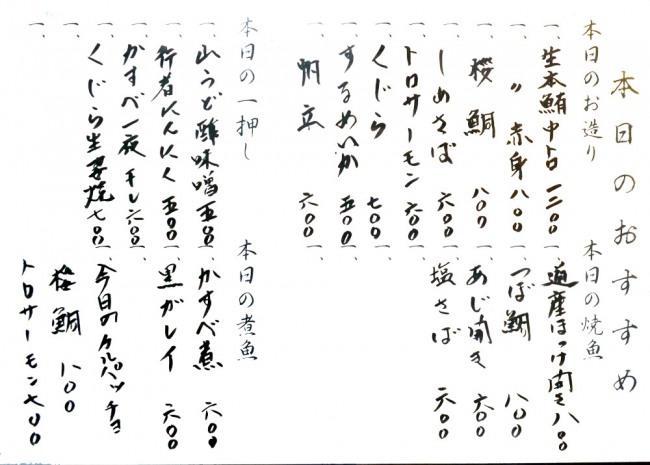 本日のおすすめ
本日のお造り
一、生本鮪中トロ 一二〇〇
一、〃 赤身 八〇〇
一、桜鯛 八〇〇
一、しめさば 六〇〇
一、トロサーモン 六〇〇
一、くじら 七〇〇
一、するめいか 五〇〇
一、帆立 六〇〇
本日の焼魚
一、道産ほっけ開き 八〇〇
一、つぼ鯛 八〇〇
一、あじ開き 六〇〇
一、塩さば 六〇〇
本日の一押し
一、山うど酢味噌 五〇〇
一、行者にんにく 五〇〇
一、かすべ一夜干し 六〇〇
一、くじら生姜焼 七〇〇
本日の煮魚
一、かすべ煮 六〇〇
一、黒がレイ 六〇〇
一、今日のカルパッチョ
桜鯛 八〇〇
トロサーモン 七〇〇